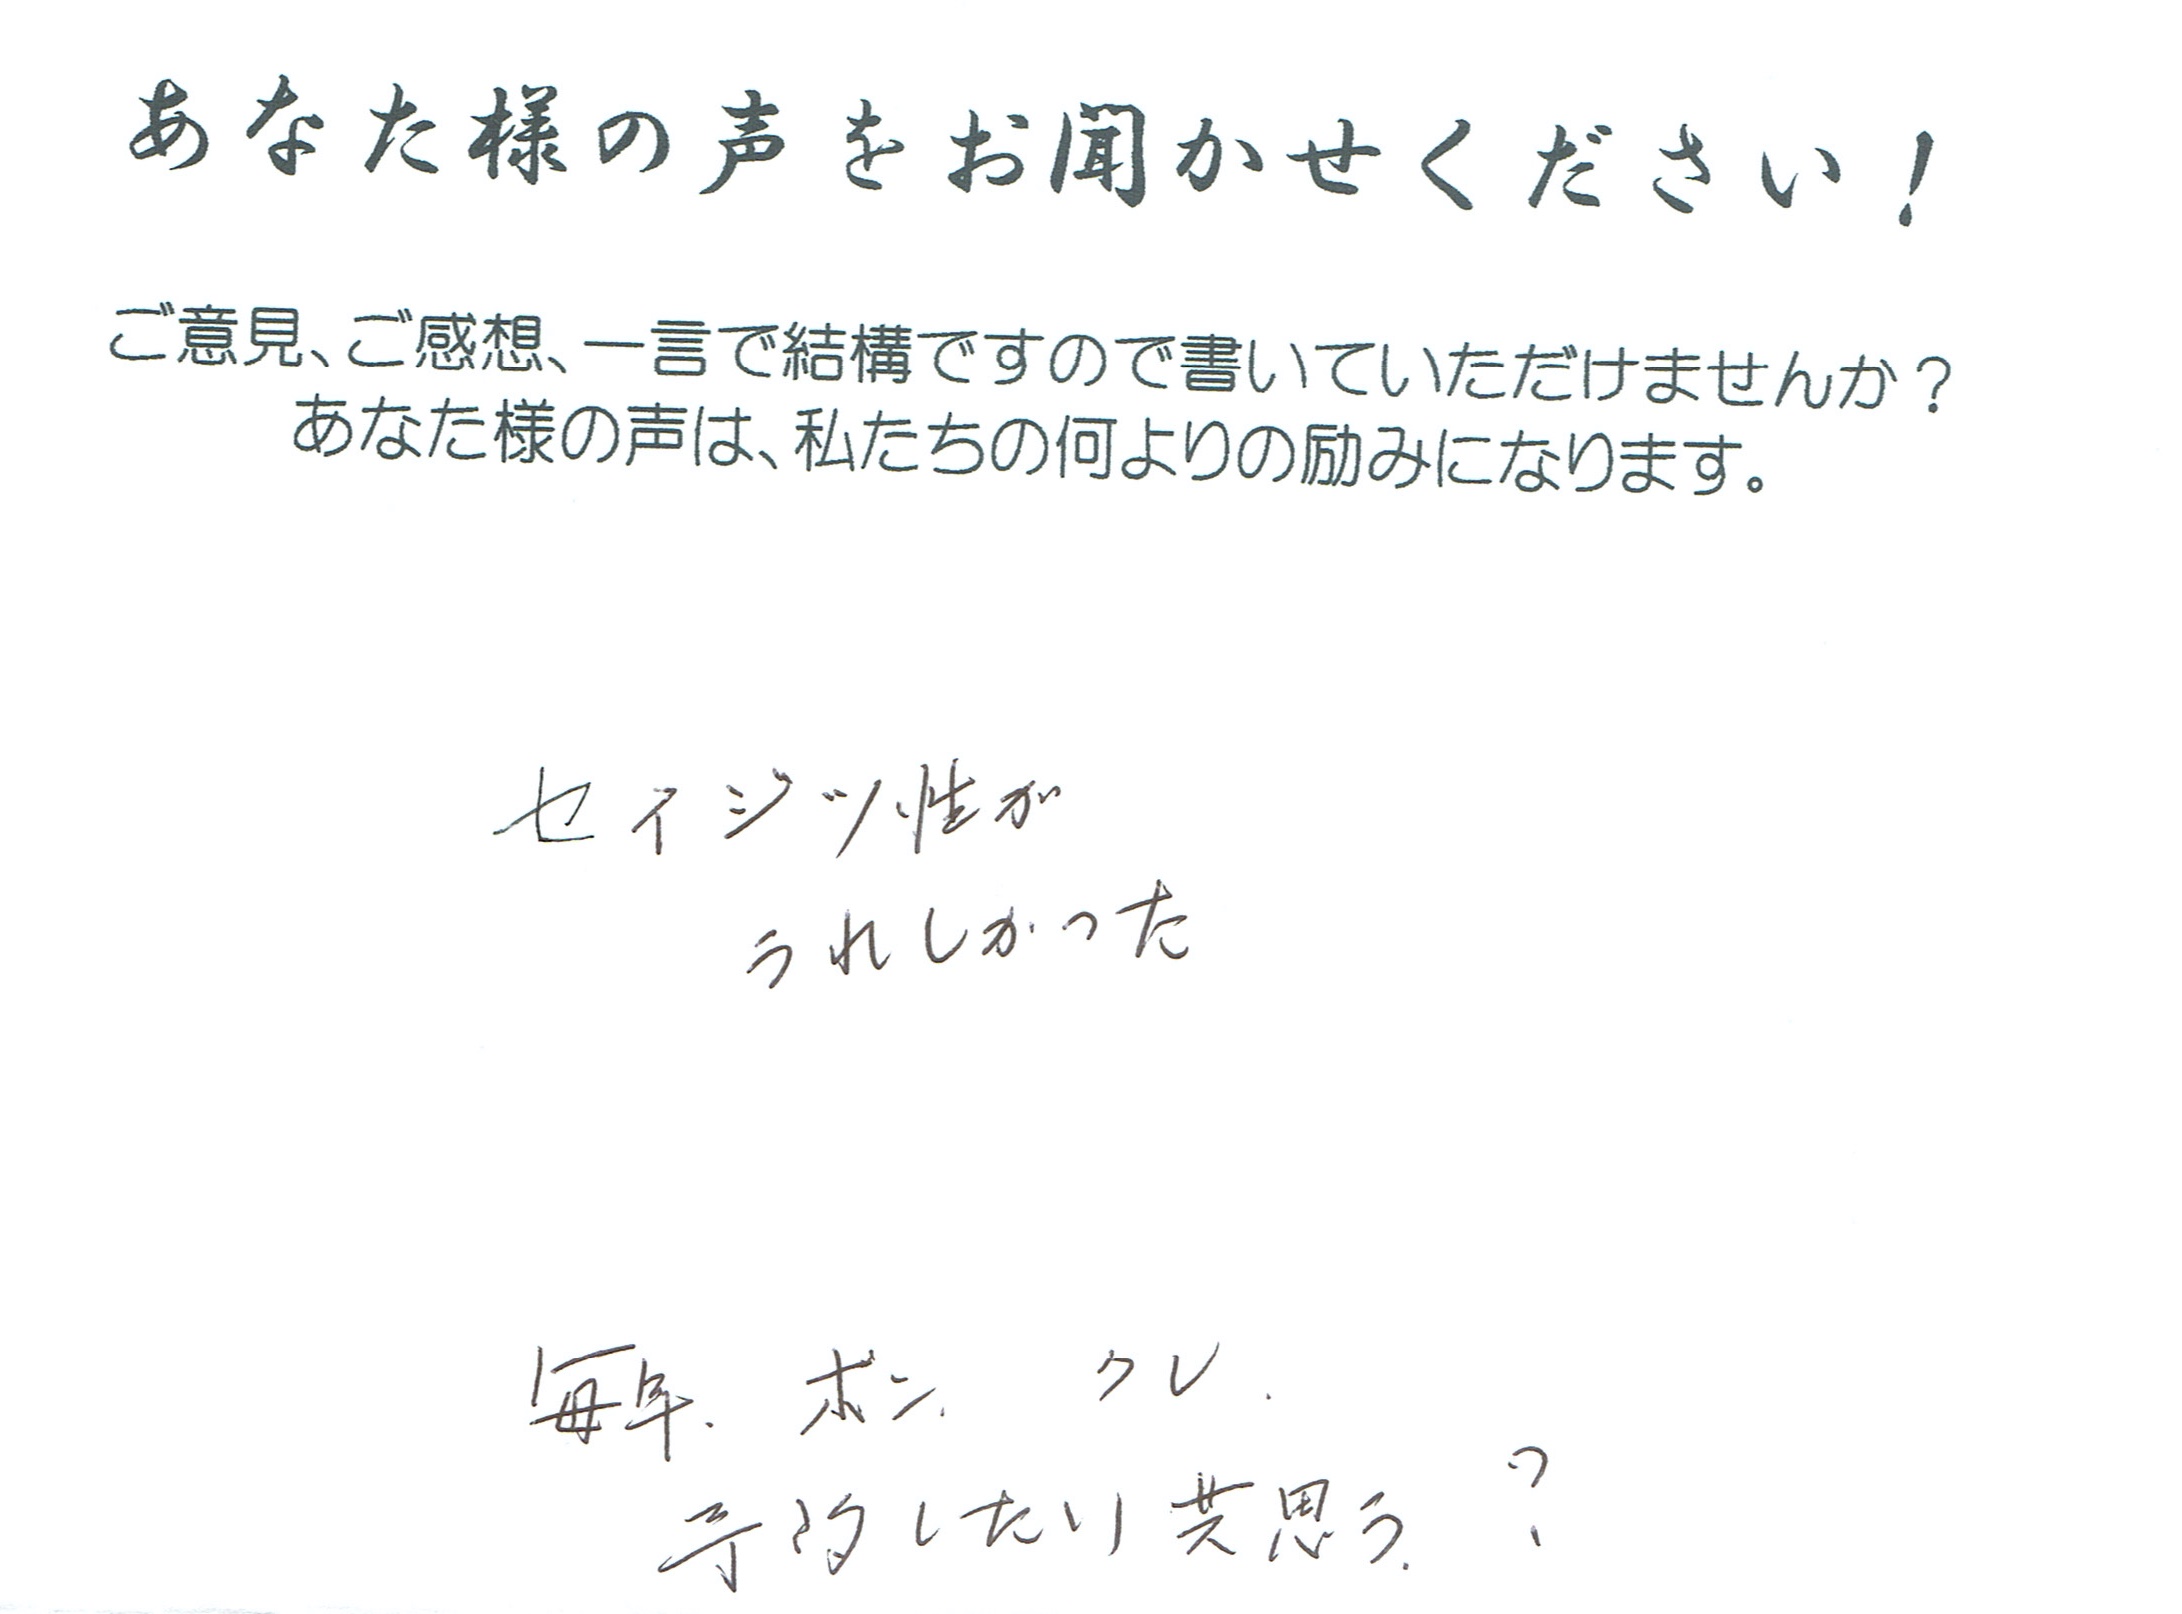 あなた様の声をお聞かせください!
ご意見、ご感想、一言で結構ですので書いていただけませんか?
あなた様の声は、私たちの何よりの励みになります。
セイジツ性が
うれしかった
毎年. ボン. クレ.
予約したり共思う.?